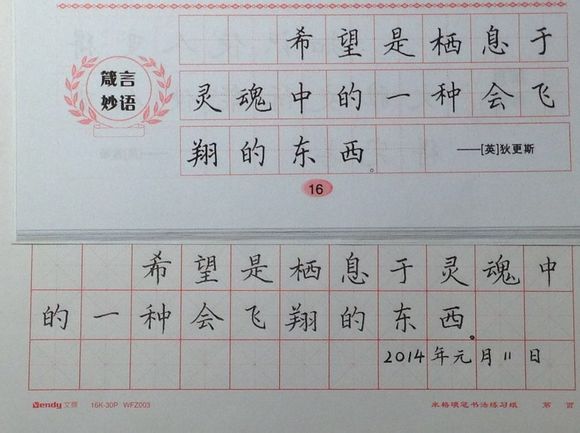 箴言
妙语
希望是栖息于
灵魂中的一种会飞
翔的东西。
——[英]狄更斯
16
希望是栖息于灵魂中
的一种会飞翔的东西。
2014年元月11日
Wendy 文蒂 16K-30P WFZ003 米格硬笔书法练习纸 第 页